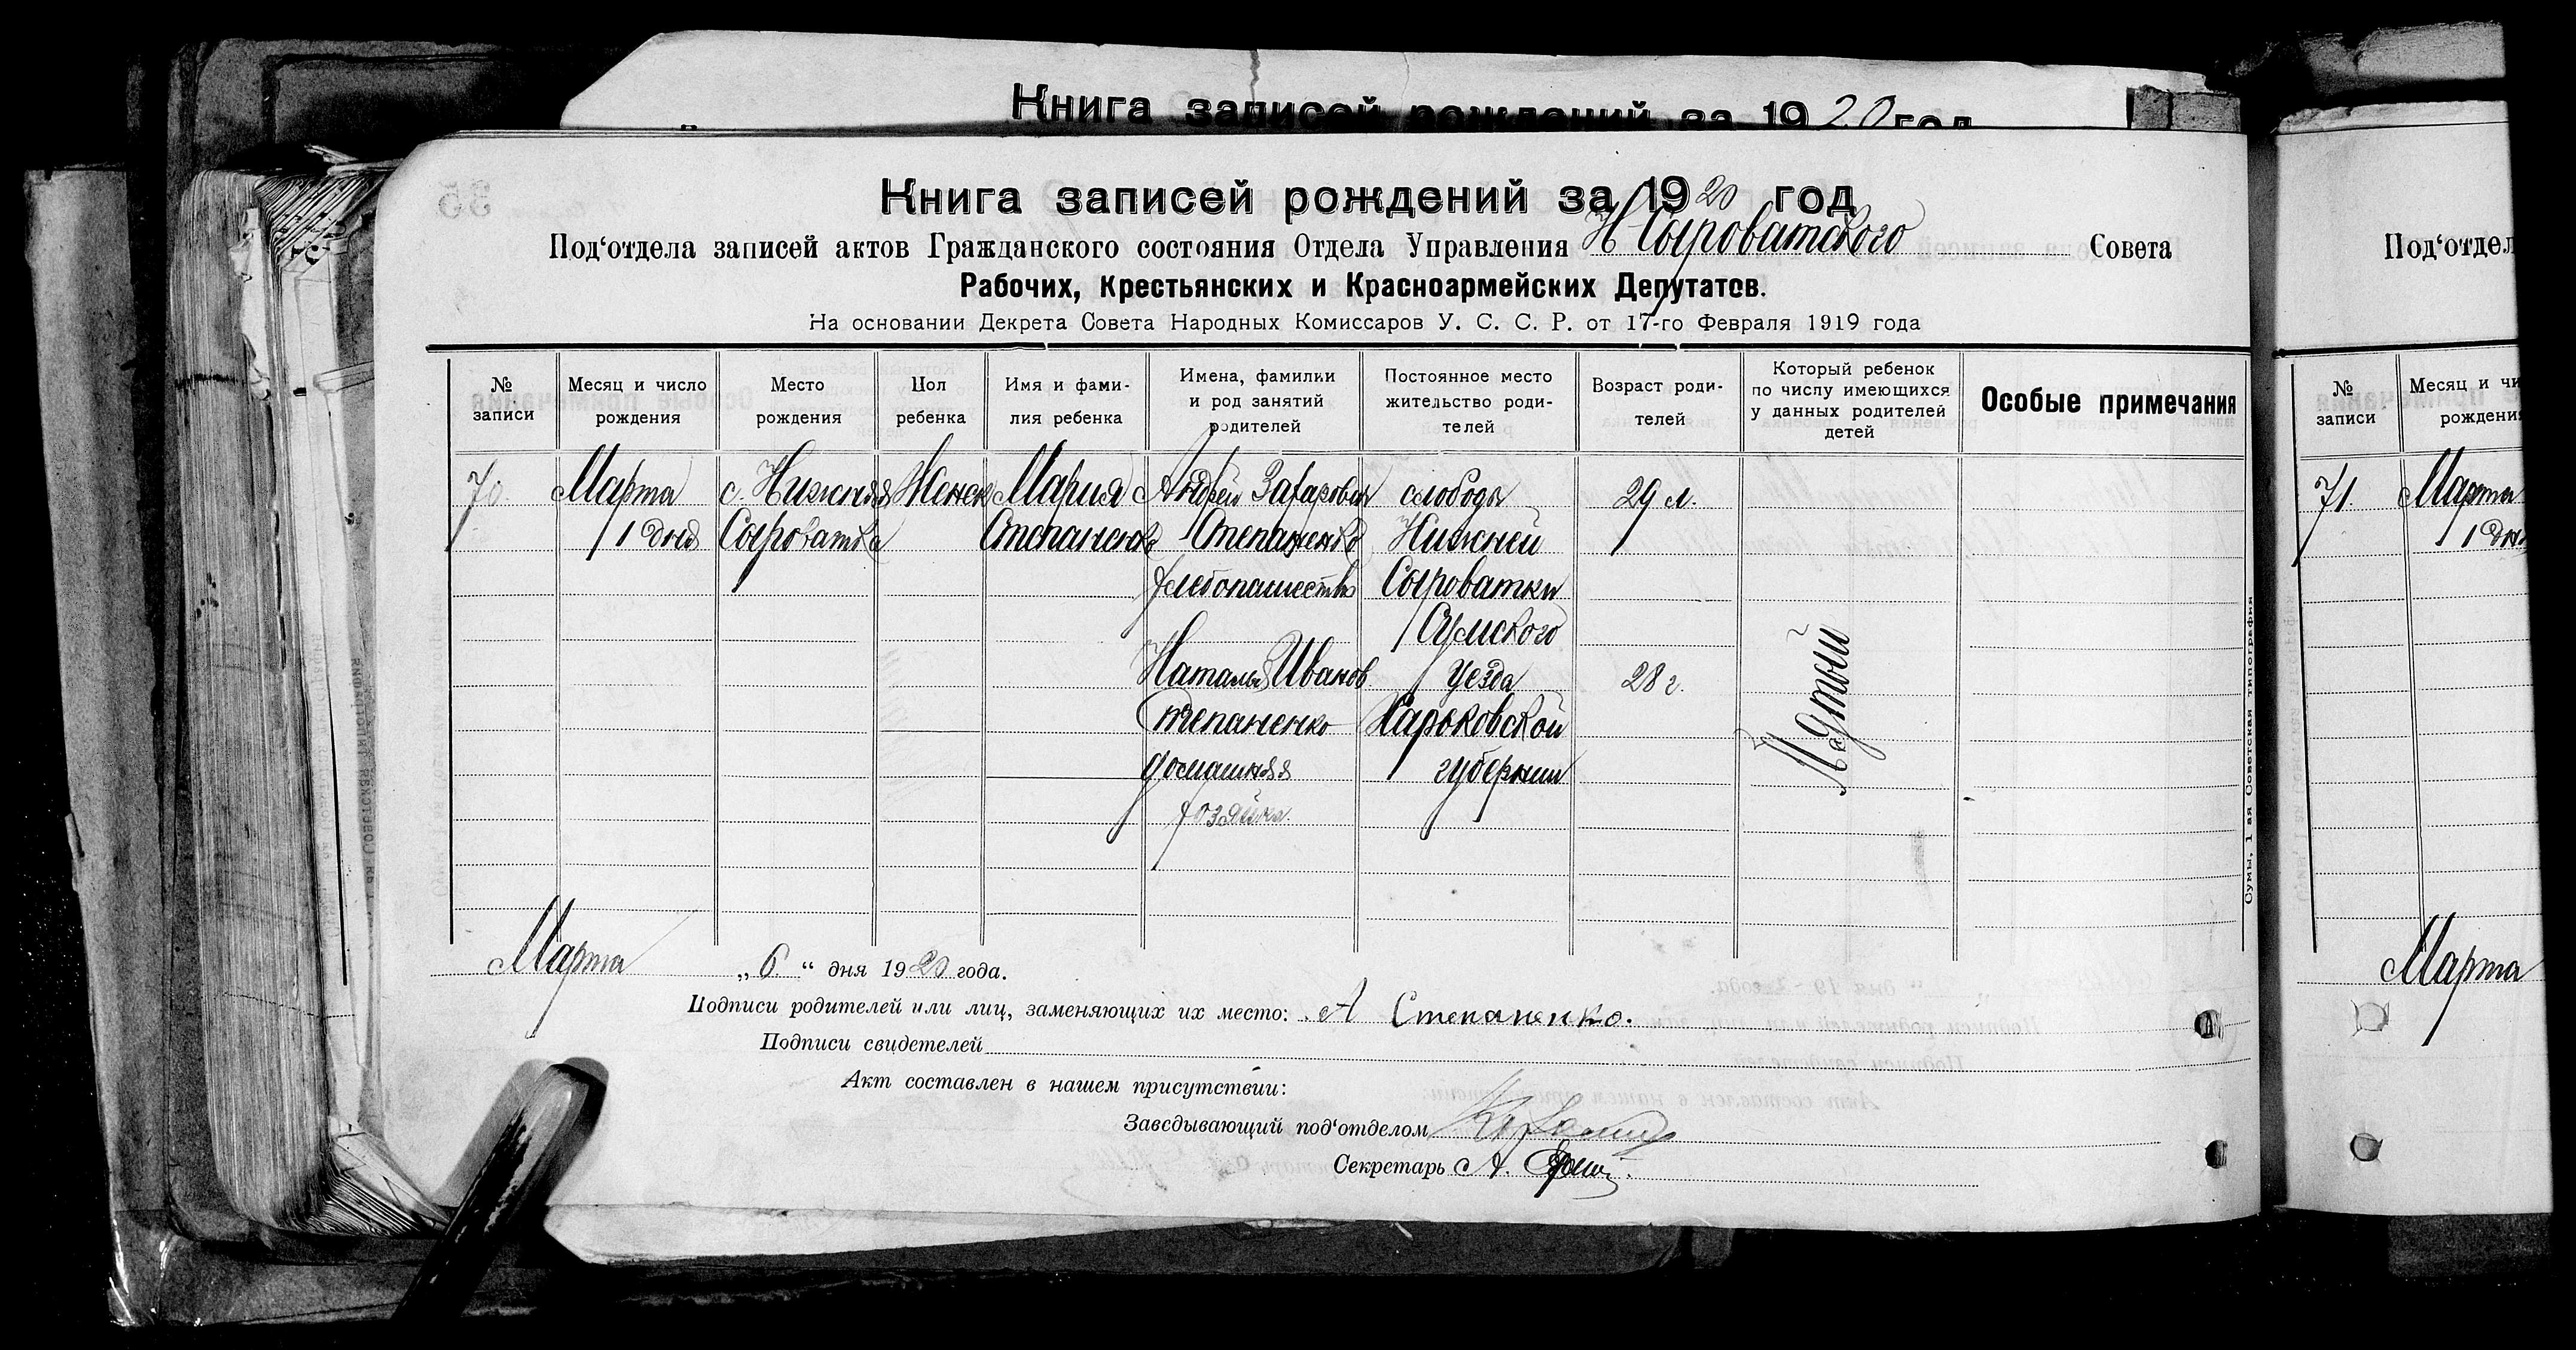 Книга записей рождений за 1920 год
Книга записей рождений за 1920 год
Под‘отдела записей актов Гражданского состояния Отдела Управления Н Сыроватского Совета
Рабочих, Крестьянских и Красноармейских Депутатов.
На основании Декрета Совета Народных Комиссаров У. С. С. Р. от 17-го Февраля 1919 года
№ записи
Месяц и число рождения
Место рождения
Пол ребенка
Имя и фами-
лия ребенка
Имена, фамилии
и род занятий
родителей
Постоянное место
жительство роди-
телей
Возраст роди-
телей
Который ребенок
по числу имеющихся
у данных родителей
детей
Особые примечания
70. Марта с. Нижняя Женск Мария Андрей Захарович слободы 29 л.
1 дня Сыроватка Степаненко Степаненко Нижней
хлебопашество Сыроватки
Сумского
Наталья Иванов уезда 28 г.
Степаненко Харьковской
домашняя губернии
хозяйка.
Пятый
Марта „6.“ дня 1920 года.
Подписи родителей или лиц, заменяющих их место: А Степаненко.
Подписи свидетелей
Акт составлен в нашем присутствии:
Заведывающий под‘отделом
Секретарь А.
Сумы, 1 ая Советская типография
Под‘отдел
№ записи
Месяц и чи
рождени
71. Марта
1 дн
Марта